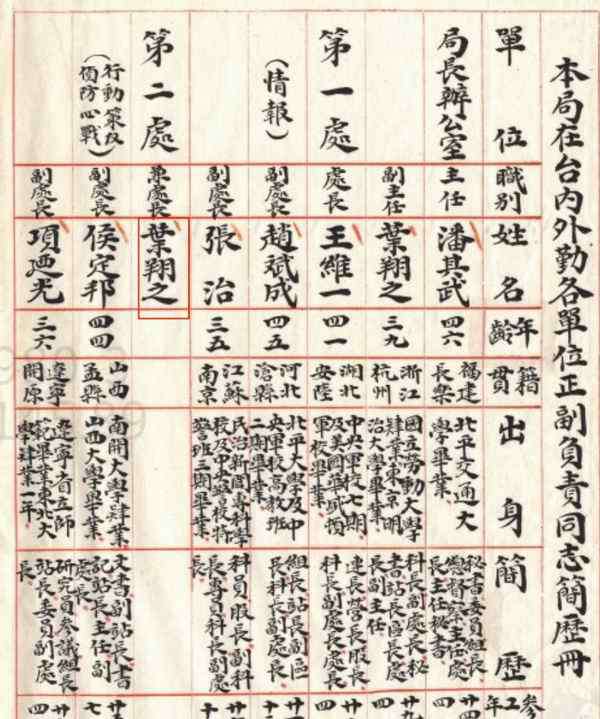 本局在台內外勤各單位正副負責同志簡歷冊
單位 職別 姓名 年齡 籍貫 出身 簡歷 參工年
局長辦公室 主任 潘其武 四六 福建長樂 北平交通大學畢業 秘書委員組長總督察主任處長主任秘書
副主任 葉翔之 三九 浙江杭州 國立勞動大學肄業東京明治大學畢業 科長副處長秘書站長區長處長副主任
第一處 處長 王維一 四一 湖北安陸 中央軍校七期及美國畢
軍校畢業 連長營長股長科長副處長處長
（情報） 副處長 趙斌成 四五 河北滄縣 北平大學及中央軍校高教班二期畢業 組長站長副區長科長副處長
副處長 張治 三五 江蘇南京 民治新聞專科學校及中央警校特警班三期畢業 科員股長副科長專員科長副處長
第二處 兼處長 葉翔之
（行動策反偵防心戰） 副處長 侯定邦 四四 山西孟縣 南開大學肄業山西大學畢業 文書副站長書記站長主任副處長
副處長 項迺光 三六 遼寧開原 遼寧省立師範畢業東北大學肄業一年 研究員參議組長站長委員副處長